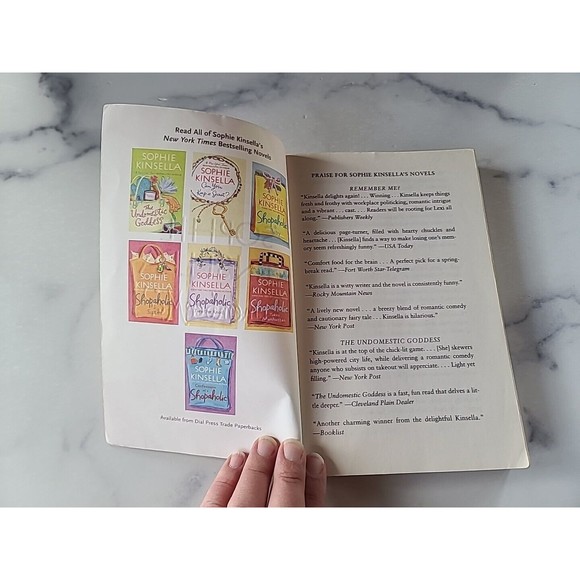 Read All of Sophie Kinsella's
New York Times Bestselling Novels
SOPHIE
KINSELLA
The
Undomestic
Goddess
SOPHIE
KINSELLA
Can You
Keep a Secret?
SOPHIE
KINSELLA
Shopaholic
SOPHIE
KINSELLA
Shopaholic
SOPHIE
KINSELLA
Shopaholic
SOPHIE
KINSELLA
Shopaholic
SOPHIE
KINSELLA
Shopaholic
Available from Dial Press Trade Paperbacks
PRAISE FOR SOPHIE KINSELLA'S NOVELS
REMEMBER ME?
"Kinsella delights again! . . . Winning . . . Kinsella keeps things
fresh and frothy with workplace politicking, romantic intrigue
and a vibrant . . . cast. . . . Readers will be rooting for Lexi all
along." —Publishers Weekly
"A delicious page-turner, filled with hearty chuckles and
heartache . . . [Kinsella] finds a way to make losing one's mem-
ory seem refreshingly funny." —USA Today
"Comfort food for the brain . . . A perfect pick for a spring-
break read." —Fort Worth Star-Telegram
"Kinsella is a witty writer and the novel is consistently funny."
—Rocky Mountain News
"A lively new novel . . . a breezy blend of romantic comedy
and cautionary fairy tale . . . Kinsella is hilarious."
—New York Post
THE UNDOMESTIC GODDESS
"Kinsella is at the top of the chick-lit game. . . . [She] skewers
high-powered city life, while delivering a romantic comedy
anyone who subsists on takeout will appreciate. . . . Light yet
filling." —New York Post
"The Undomestic Goddess is a fast, fun read that delves a lit-
tle deeper." —Cleveland Plain Dealer
"Another charming winner from the delightful Kinsella."
—Booklist